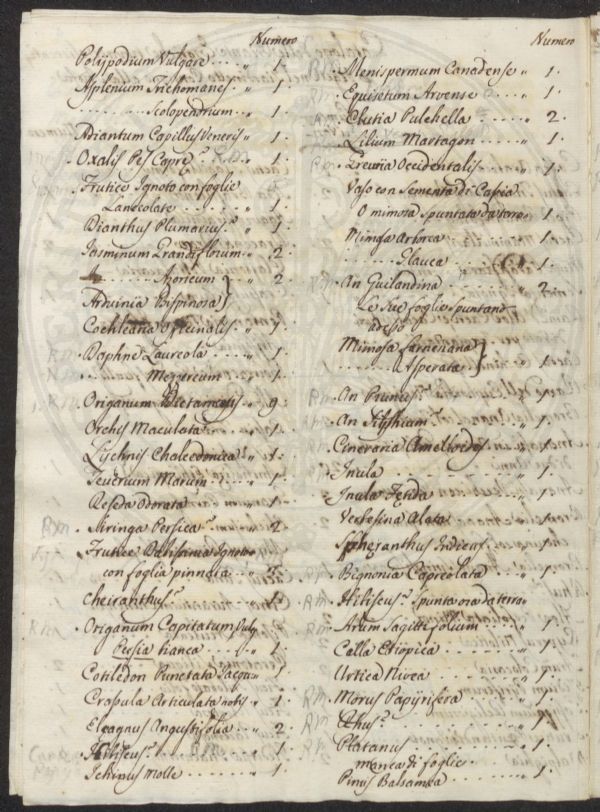 Numero
Polijpodium Vulgare 1.
Asplenium Trichomanes 1.
Scolopendrium 1.
Adiantum Capillus Veneris 1.
Oxalis Pes Capre 1.
Frutice Ignoto con foglie
Lanceolate 1.
Dianthus Plumarius 1.
Jasminum Grandiflorum 2.
Azoricum 2.
Arduinia Bispinosa
Cochlearia Officinalis
Daphne Laureola 1.
Mezereum 1.
Origanum 9.
Orchis Maculata 1.
Lychnis Chalcedonica 1.
Teucrium Marum 1.
Reseda Odorata 1.
Siringa Persica 2
Frutice Ignoto
con foglia pinnata
Cheiranthus 1.
Origanum Capitatum Vulg
Persia bianca 1.
Cotiledon Punctata Jacqu
Crasula Articulata nobis 1.
Eleagnus Angustifolia 2
Hibiscus 1.
Schinus Molle 1.
Numero
Menispermum Canadense 1.
Equisetum Arvense 1.
Clutia Pulchella 2.
Lilium Martagon 1.
Occidentalis 1.
Vaso con Sementa di Casia
O mimosa Spuntata da terra 1.
Mimosa Arborea 1.
Glauca 1.
An Guilandina 2.
Le Sue foglie Spuntano
adesso
Mimosa Farnesiana
Asperata 1.
An Prunus
An Silphium
Cineraria Amelloides 1.
Inula 1.
Inula Fetida 1.
Verbesina Alata 1.
Spheranthus Indicus 1.
Bignonia Capreolata 1.
Hibiscus Spunta ora da terra
Arum Sagittifolium 1.
Calla Etiopica 1.
Urtica Nivea
Morus Papyrifera 1.
Rhus
Platanus
manca di foglie 1.
Pinus Balsamea 1.